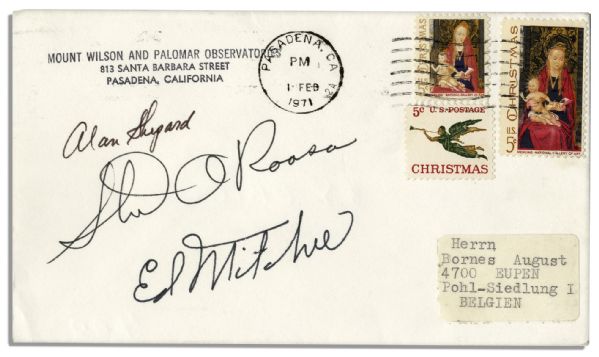 MOUNT WILSON AND PALOMAR OBSERVATORIES
813 SANTA BARBARA STREET
PASADENA, CALIFORNIA
PASADENA, CA
PM
1 FEB
1971
CHRISTMAS
5c U.S. POSTAGE
CHRISTMAS
CHRISTMAS
U.S. 5c
MEMLING: NATIONAL GALLERY OF ART
Alan Shepard
Stu A Roosa
Ed Mitchell
Herrn
Bornes August
4700 EUPEN
Pohl-Siedlung I
BELGIEN